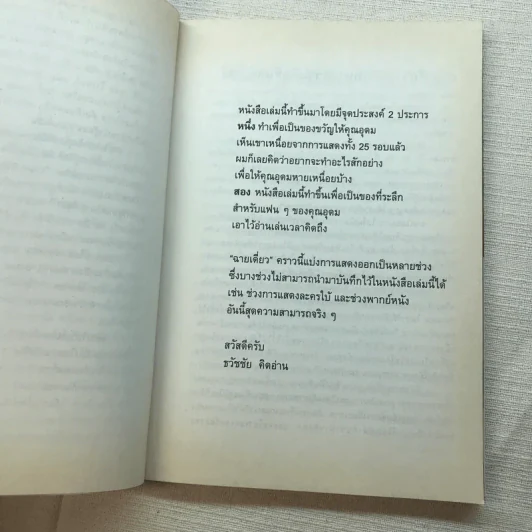 หนังสือเล่มนี้ทำขึ้นมาโดยมีจุดประสงค์ 2 ประการ
หนึ่ง ทำเพื่อเป็นของขวัญให้คุณอุดม
เห็นเขาเหนื่อยจากการแสดงทั้ง 25 รอบแล้ว
ผมก็เลยคิดว่าอยากจะทำอะไรสักอย่าง
เพื่อให้คุณอุดมหายเหนื่อยบ้าง
สอง หนังสือเล่มนี้ทำขึ้นเพื่อเป็นของที่ระลึก
สำหรับแฟน ๆ ของคุณอุดม
เอาไว้อ่านเล่นเวลาคิดถึง
"ฉายเดี่ยว" คราวนี้แบ่งการแสดงออกเป็นหลายช่วง
ซึ่งบางช่วงไม่สามารถนำมาบันทึกไว้ในหนังสือเล่มนี้ได้
เช่น ช่วงการแสดงละครใบ้ และช่วงพากย์หนัง
อันนี้สุดความสามารถจริง ๆ
สวัสดีครับ
ธวัชชัย คิดอ่าน